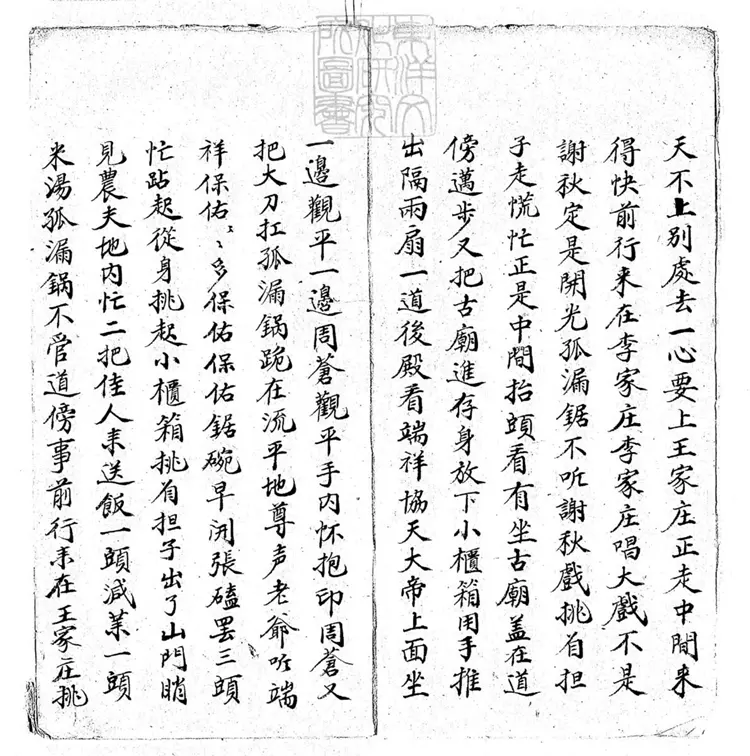 東洋文
化研究
所圖書
天不上別處去一心要上王家庄正走中間来
得快前行来在李家庄李家庄唱大戲不是
謝秋定是開光孤漏鋸不听謝秋戲挑自担
子走慌忙正是中間抬頭看有坐古廟盖在道
傍邁步又把古廟進存身放下小櫃箱用手推
出隔兩扇一道後殿看端祥協天大帝上面坐
一邊觀平一邊周蒼觀平手内怀抱印周蒼又
把大刀扛孤漏鍋跪在流平地尊声老爺听端
祥保佑〻多保佑保佑鋸碗早開張磕罷三頭
忙跕起從身挑起小櫃箱挑自担子出了山門
見農夫地内忙二把佳人来送飯一頭减菜一頭
米湯孤漏鍋不管道傍事前行来在王家庄挑